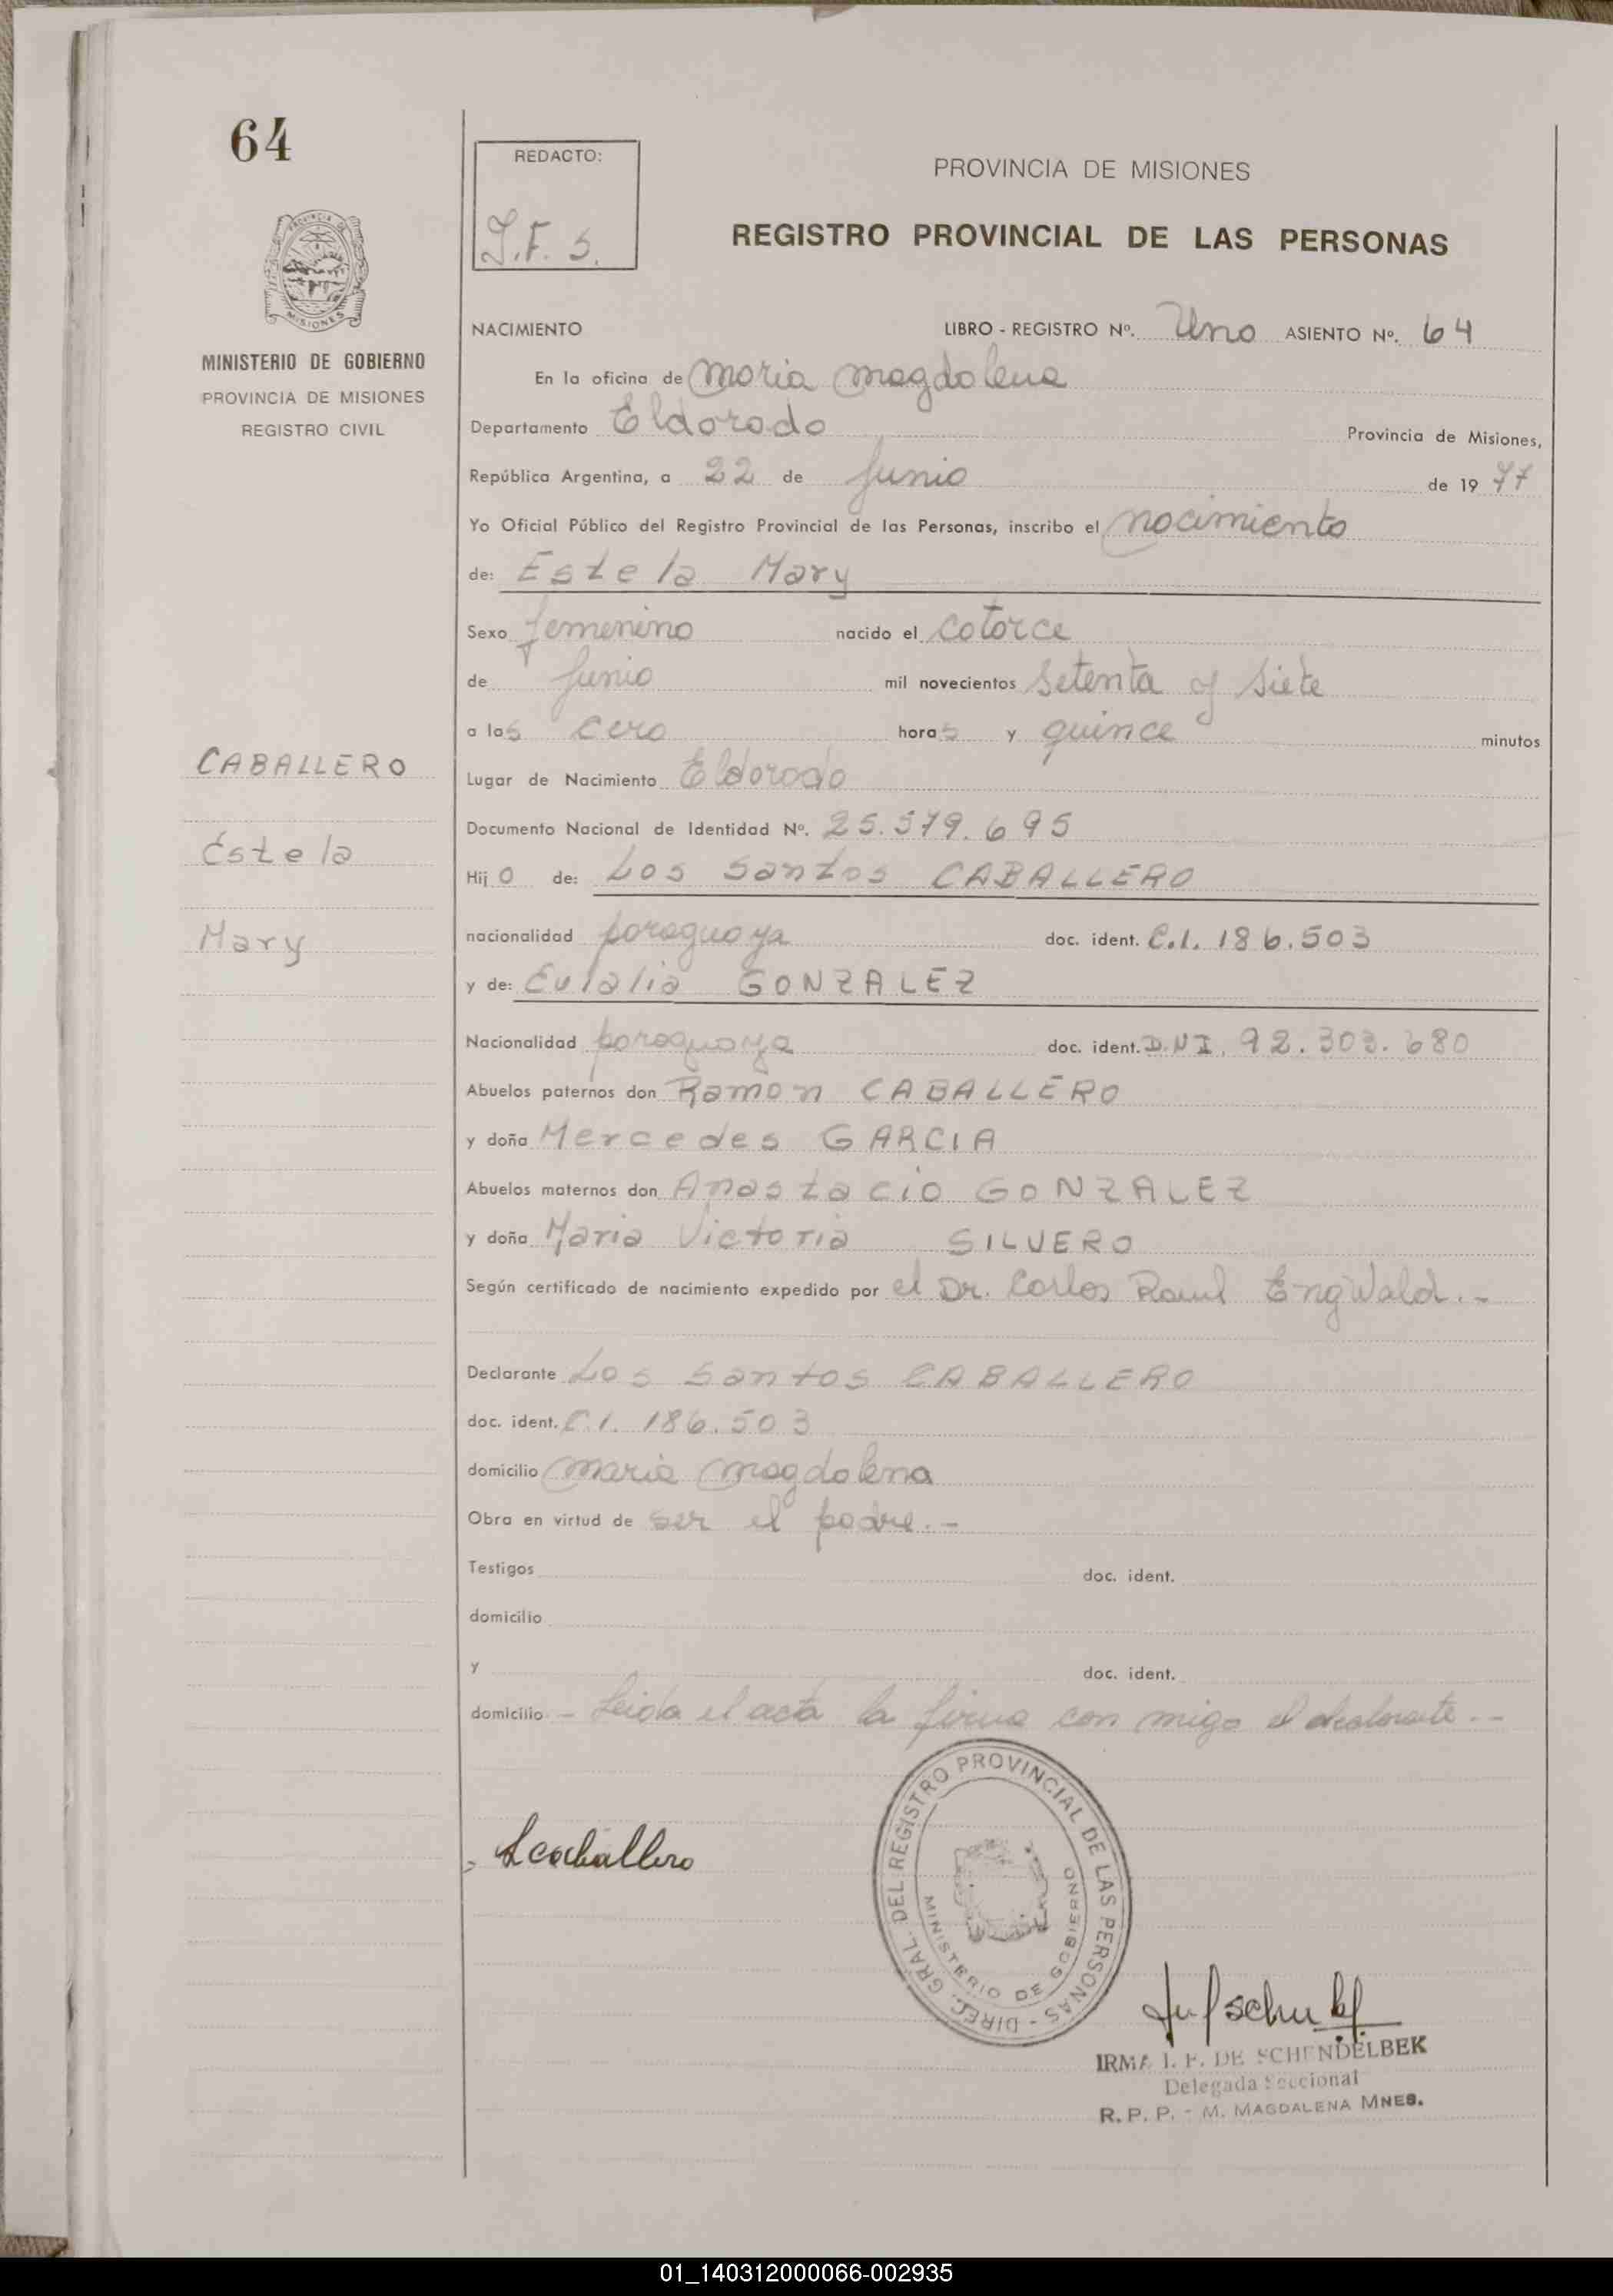 64
PROVINCIA DE
MISIONES
MINISTERIO DE GOBIERNO
PROVINCIA DE MISIONES
REGISTRO CIVIL
CABALLERO
Estela
Mary
REDACTO:
I.F. S.
PROVINCIA DE MISIONES
REGISTRO PROVINCIAL DE LAS PERSONAS
NACIMIENTO LIBRO - REGISTRO Nº. Uno ASIENTO Nº. 64
En la oficina de Maria Magdalena
Departamento Eldorado Provincia de Misiones,
República Argentina, a 22 de Junio de 19 77
Yo Oficial Público del Registro Provincial de las Personas, inscribo el nacimiento
de: Estela Mary
Sexo femenino nacido el catorce
de Junio mil novecientos setenta y siete
a las cero horas y quince minutos
Lugar de Nacimiento Eldorado
Documento Nacional de Identidad Nº. 25.579.695
Hijo de: Los Santos CABALLERO
nacionalidad paraguaya doc. ident. C.I. 186.503
y de: Eulalia GONZALEZ
Nacionalidad paraguaya doc. ident. D.N.I. 92.303.680
Abuelos paternos don Ramon CABALLERO
y doña Mercedes GARCIA
Abuelos maternos don Anastacio GONZALEZ
y doña Maria Victoria SILVERO
Según certificado de nacimiento expedido por el Dr. Carlos Raul Engwald.-
Declarante Los Santos CABALLERO
doc. ident. C.I. 186.503
domicilio Maria Magdalena
Obra en virtud de ser el padre.-
Testigos doc. ident.
domicilio
y doc. ident.
domicilio - Leida el acta la firma con migo el declarante.--
Lcaballero
DIREC. GRAL. DEL REGISTRO PROVINCIAL DE LAS PERSONAS -
MINISTERIO DE GOBIERNO
IRMA I. F. DE SCHENDELBEK
Delegada Seccional
R. P. P. - M. MAGDALENA MNES.
01_140312000066-002935